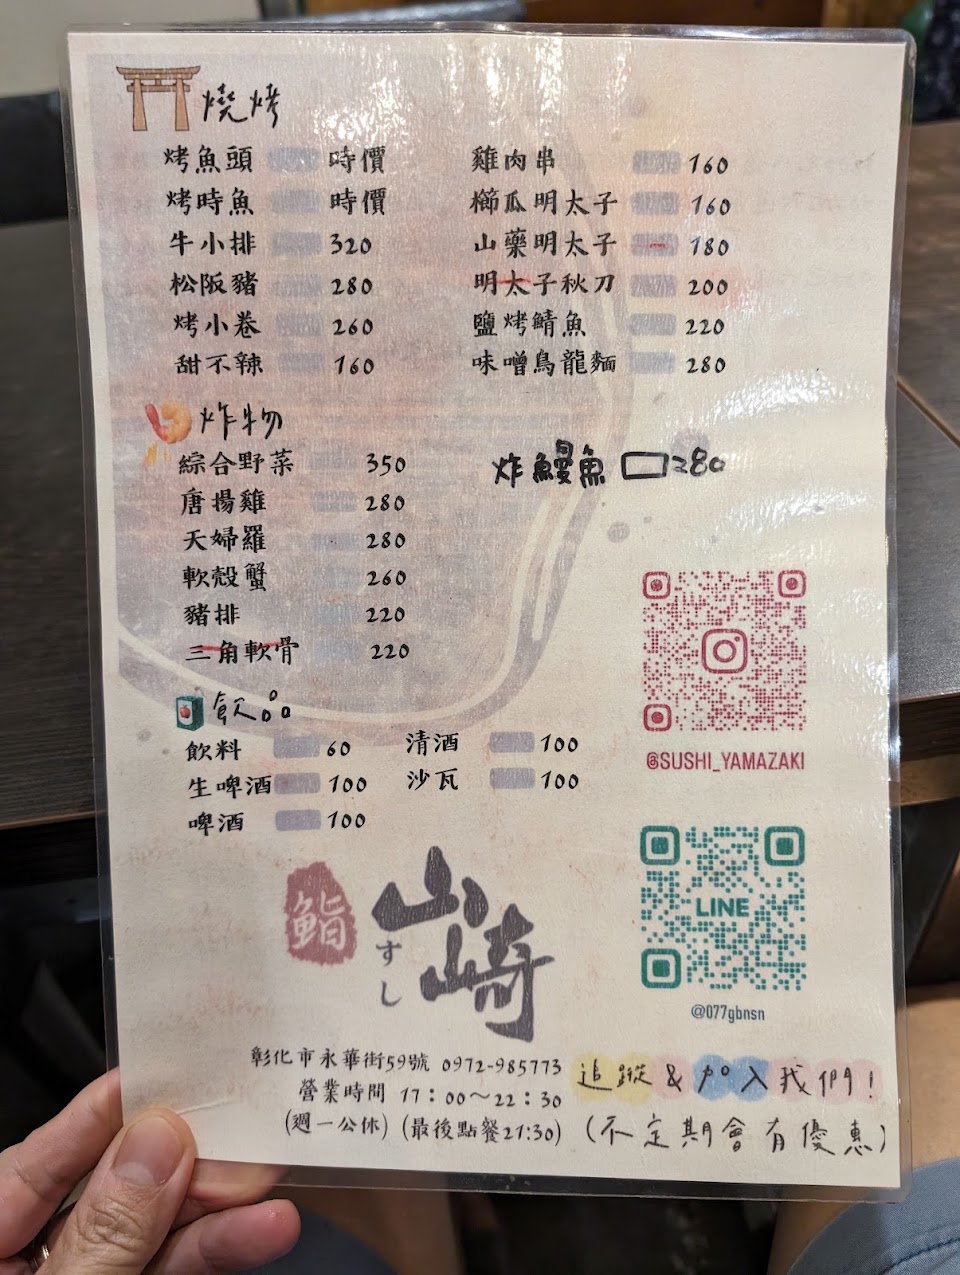 燒烤
烤魚頭 時價
烤時魚 時價
牛小排 320
松阪豬 280
烤小卷 260
甜不辣 160
雞肉串 160
櫛瓜明太子 160
山藥明太子 180
明太子秋刀 200
鹽烤鯖魚 220
味噌烏龍麵 280
炸物
綜合野菜 350
唐揚雞 280
天婦羅 280
軟殼蟹 260
豬排 220
三角軟骨 220
炸鰻魚 280
飲品
飲料 60
生啤酒 100
啤酒 100
清酒 100
沙瓦 100
@SUSHI_YAMAZAKI
LINE
@077gbnsn
鮨
山崎
すし
彰化市永華街59號 0972-985773
營業時間 17:00～22:30
(週一公休) (最後點餐21:30)
追蹤 & 加入我們!
(不定期會有優惠)